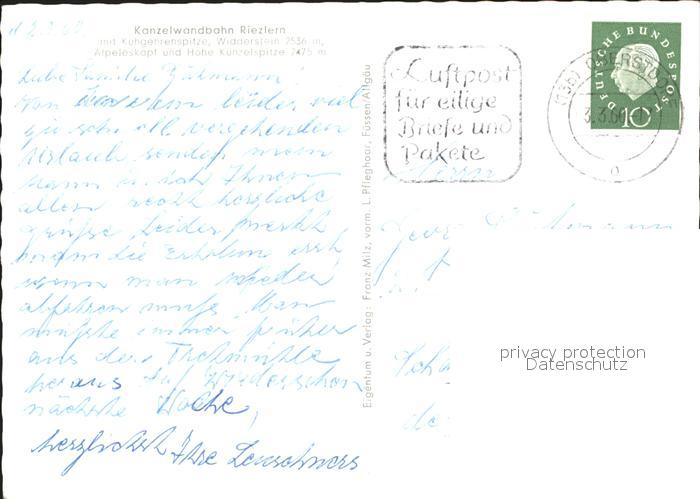 Kanzelwandbahn Riezlern
mit Kuhgehrenspitze, Widderstein 2536 m,
Alpeleskopf und Hohe Künzelspitze 2475 m
2.3.60
Liebe Familie
Von leider viel
zu schnell vergehenden
Urlaub senden mein
Mann u. ich Ihnen
allen recht herzliche
Grüße. Leider merkt
man die Erholung erst,
wenn man wieder
abfahren muß. Man
müßte immer früher
aus der Tretmühle
heraus. Auf Wiedersehen
nächste Woche,
herzlichst Ihre
Eigentum u. Verlag: Franz Milz, vorm. L. Pfleghaar, Füssen/Allgäu
Luftpost
für eilige
Briefe und
Pakete
DEUTSCHE BUNDESPOST
10
3.3.60
Herrn
privacy protection
Datenschutz